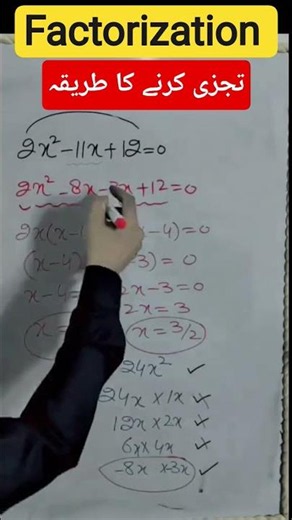 Factorization
تجزی کرنے کا طریقہ
2x² -11x+12=0
2x² -8x-3x+12=0
2x(x- -4)=0
(x-4) 3)=0
x-4= 2x-3=0
2x=3
x= x=3/2
24x² ✓
24x × 1x ×
12x × 2x ×
6x × 4x ×
-8x × -3x ✓